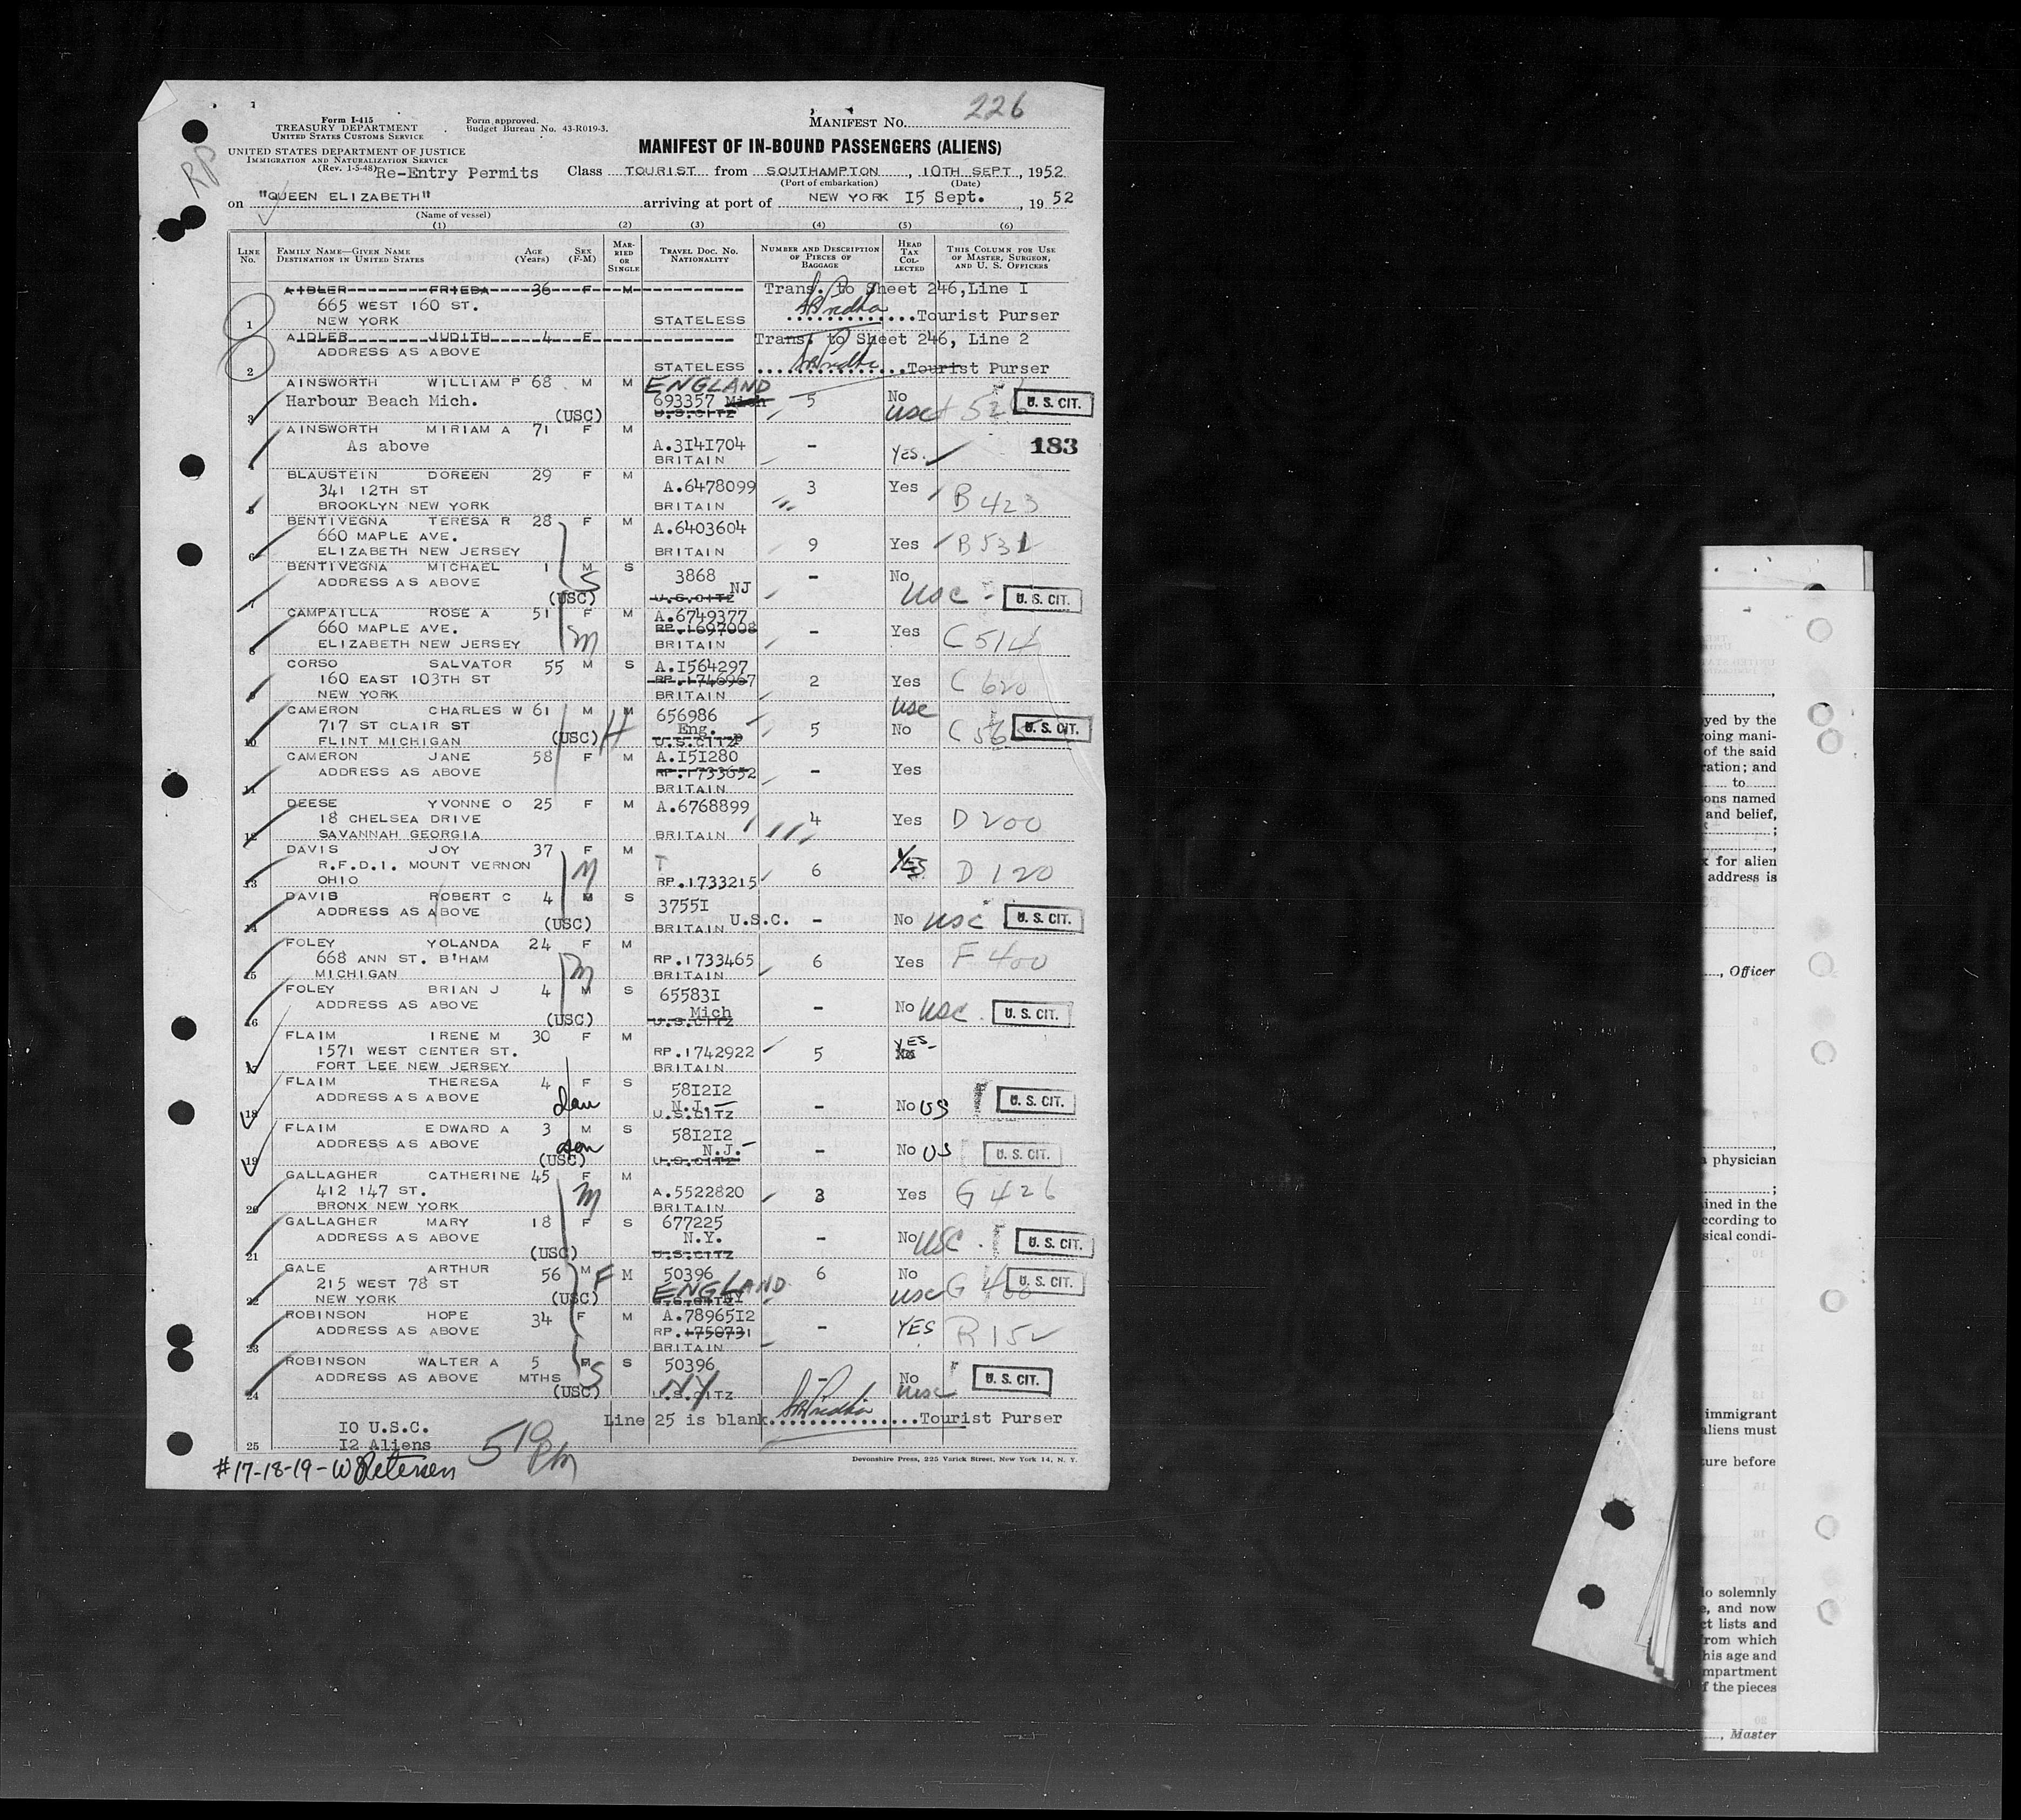 226
Form I-415
TREASURY DEPARTMENT
UNITED STATES CUSTOMS SERVICE
Form approved.
Budget Bureau No. 43-R019-3.
MANIFEST No.
UNITED STATES DEPARTMENT OF JUSTICE
IMMIGRATION AND NATURALIZATION SERVICE
(Rev. 1-5-48)
RP
MANIFEST OF IN-BOUND PASSENGERS (ALIENS)
Re-Entry Permits Class TOURIST from SOUTHAMPTON, 10TH SEPT, 1952
(Port of embarkation) (Date)
on "QUEEN ELIZABETH" arriving at port of NEW YORK 15 Sept., 1952
(Name of vessel)
(1) (2) (3) (4) (5) (6)
LINE No. FAMILY NAME—GIVEN NAME DESTINATION IN UNITED STATES AGE (Years) SEX (F-M) MARRIED OR SINGLE TRAVEL DOC. No. NATIONALITY NUMBER AND DESCRIPTION OF PIECES OF BAGGAGE HEAD TAX COLLECTED THIS COLUMN FOR USE OF MASTER, SURGEON, AND U. S. OFFICERS
AIDLER FRIEDA 36 F M Trans. to Sheet 246, Line 1
665 WEST 160 ST.
1 NEW YORK STATELESS Tourist Purser
AIDLER JUDITH 4 F Trans. to Sheet 246, Line 2
ADDRESS AS ABOVE
2 STATELESS Tourist Purser
AINSWORTH WILLIAM P 68 M M ENGLAND
Harbour Beach Mich. 693357 Mich 5 No U. S. CIT.
3 (USC) U.S.CITZ usc
AINSWORTH MIRIAM A 71 F M
As above A.3141704 - 183
4 BRITAIN YES.
BLAUSTEIN DOREEN 29 F M
341 12TH ST A.6478099 3 Yes B 423
5 BROOKLYN NEW YORK BRITAIN
BENTIVEGNA TERESA R 28 F M
660 MAPLE AVE. A.6403604
6 ELIZABETH NEW JERSEY BRITAIN 9 Yes B 531
BENTIVEGNA MICHAEL 1 M S
ADDRESS AS ABOVE S 3868 NJ - No
7 (USC) U.S.CITZ usc - U. S. CIT.
CAMPAILLA ROSE A 51 F M A.6749377
660 MAPLE AVE. RP.1697008 - Yes
8 ELIZABETH NEW JERSEY m BRITAIN C 514
CORSO SALVATOR 55 M S A.1564297
160 EAST 103TH ST RP.1746967 2 Yes C 620
9 NEW YORK BRITAIN
CAMERON CHARLES W 61 M M 656986 usc
717 ST CLAIR ST Eng. 5 No C 56 U. S. CIT.
10 FLINT MICHIGAN (USC) H U.S.CITZ
CAMERON JANE 58 F M A.151280
ADDRESS AS ABOVE RP.1733652 - Yes
11 BRITAIN
DEESE YVONNE O 25 F M A.6768899
18 CHELSEA DRIVE 4 Yes D 200
12 SAVANNAH GEORGIA BRITAIN
DAVIS JOY 37 F M
R.F.D.1. MOUNT VERNON M T 6 YES D 120
13 OHIO RP.1733215
DAVIS ROBERT C 4 M S 37551
ADDRESS AS ABOVE U.S.C. - No usc U. S. CIT.
14 (USC) BRITAIN
FOLEY YOLANDA 24 F M
668 ANN ST. B'HAM RP.1733465 6 Yes F 400
15 MICHIGAN m BRITAIN
FOLEY BRIAN J 4 M S 655831
ADDRESS AS ABOVE Mich - No usc U. S. CIT.
16 (USC) U.S.CITZ
FLAIM IRENE M 30 F M
1571 WEST CENTER ST. RP.1742922 5 YES-
17 FORT LEE NEW JERSEY BRITAIN
FLAIM THERESA 4 F S 581212
ADDRESS AS ABOVE dau N.J. - No US U. S. CIT.
18 U.S.CITZ
FLAIM EDWARD A 3 M S 581212
ADDRESS AS ABOVE son N.J. - No US U. S. CIT.
19 (USC) U.S.CITZ
GALLAGHER CATHERINE 45 F M
412 147 ST. m A.5522820 3 Yes G 426
20 BRONX NEW YORK BRITAIN
GALLAGHER MARY 18 F S 677225
ADDRESS AS ABOVE N.Y. - No USC. U. S. CIT.
21 (USC) U.S.CITZ
GALE ARTHUR 56 M F M 50396 6 No
215 WEST 78 ST ENGLAND G 400 U. S. CIT.
22 NEW YORK (USC) NY usc
ROBINSON HOPE 34 F M A.7896512
ADDRESS AS ABOVE RP.1750731 - YES R 152
23 BRITAIN
ROBINSON WALTER A 5 M S 50396
ADDRESS AS ABOVE MTHS S NY - No U. S. CIT.
24 (USC) U.S.CITZ usc
Line 25 is blank. Tourist Purser
10 U.S.C.
25 12 Aliens
510 PM
#17-18-19-W Petersen
Devonshire Press, 225 Varick Street, New York 14, N. Y.
yed by the
oing mani-
of the said
ration; and
to
ons named
and belief,
x for alien
address is
, Officer
physician
ined in the
ccording to
sical condi-
immigrant
aliens must
ture before
lo solemnly
e, and now
ct lists and
from which
his age and
mpartment
f the pieces
, Master